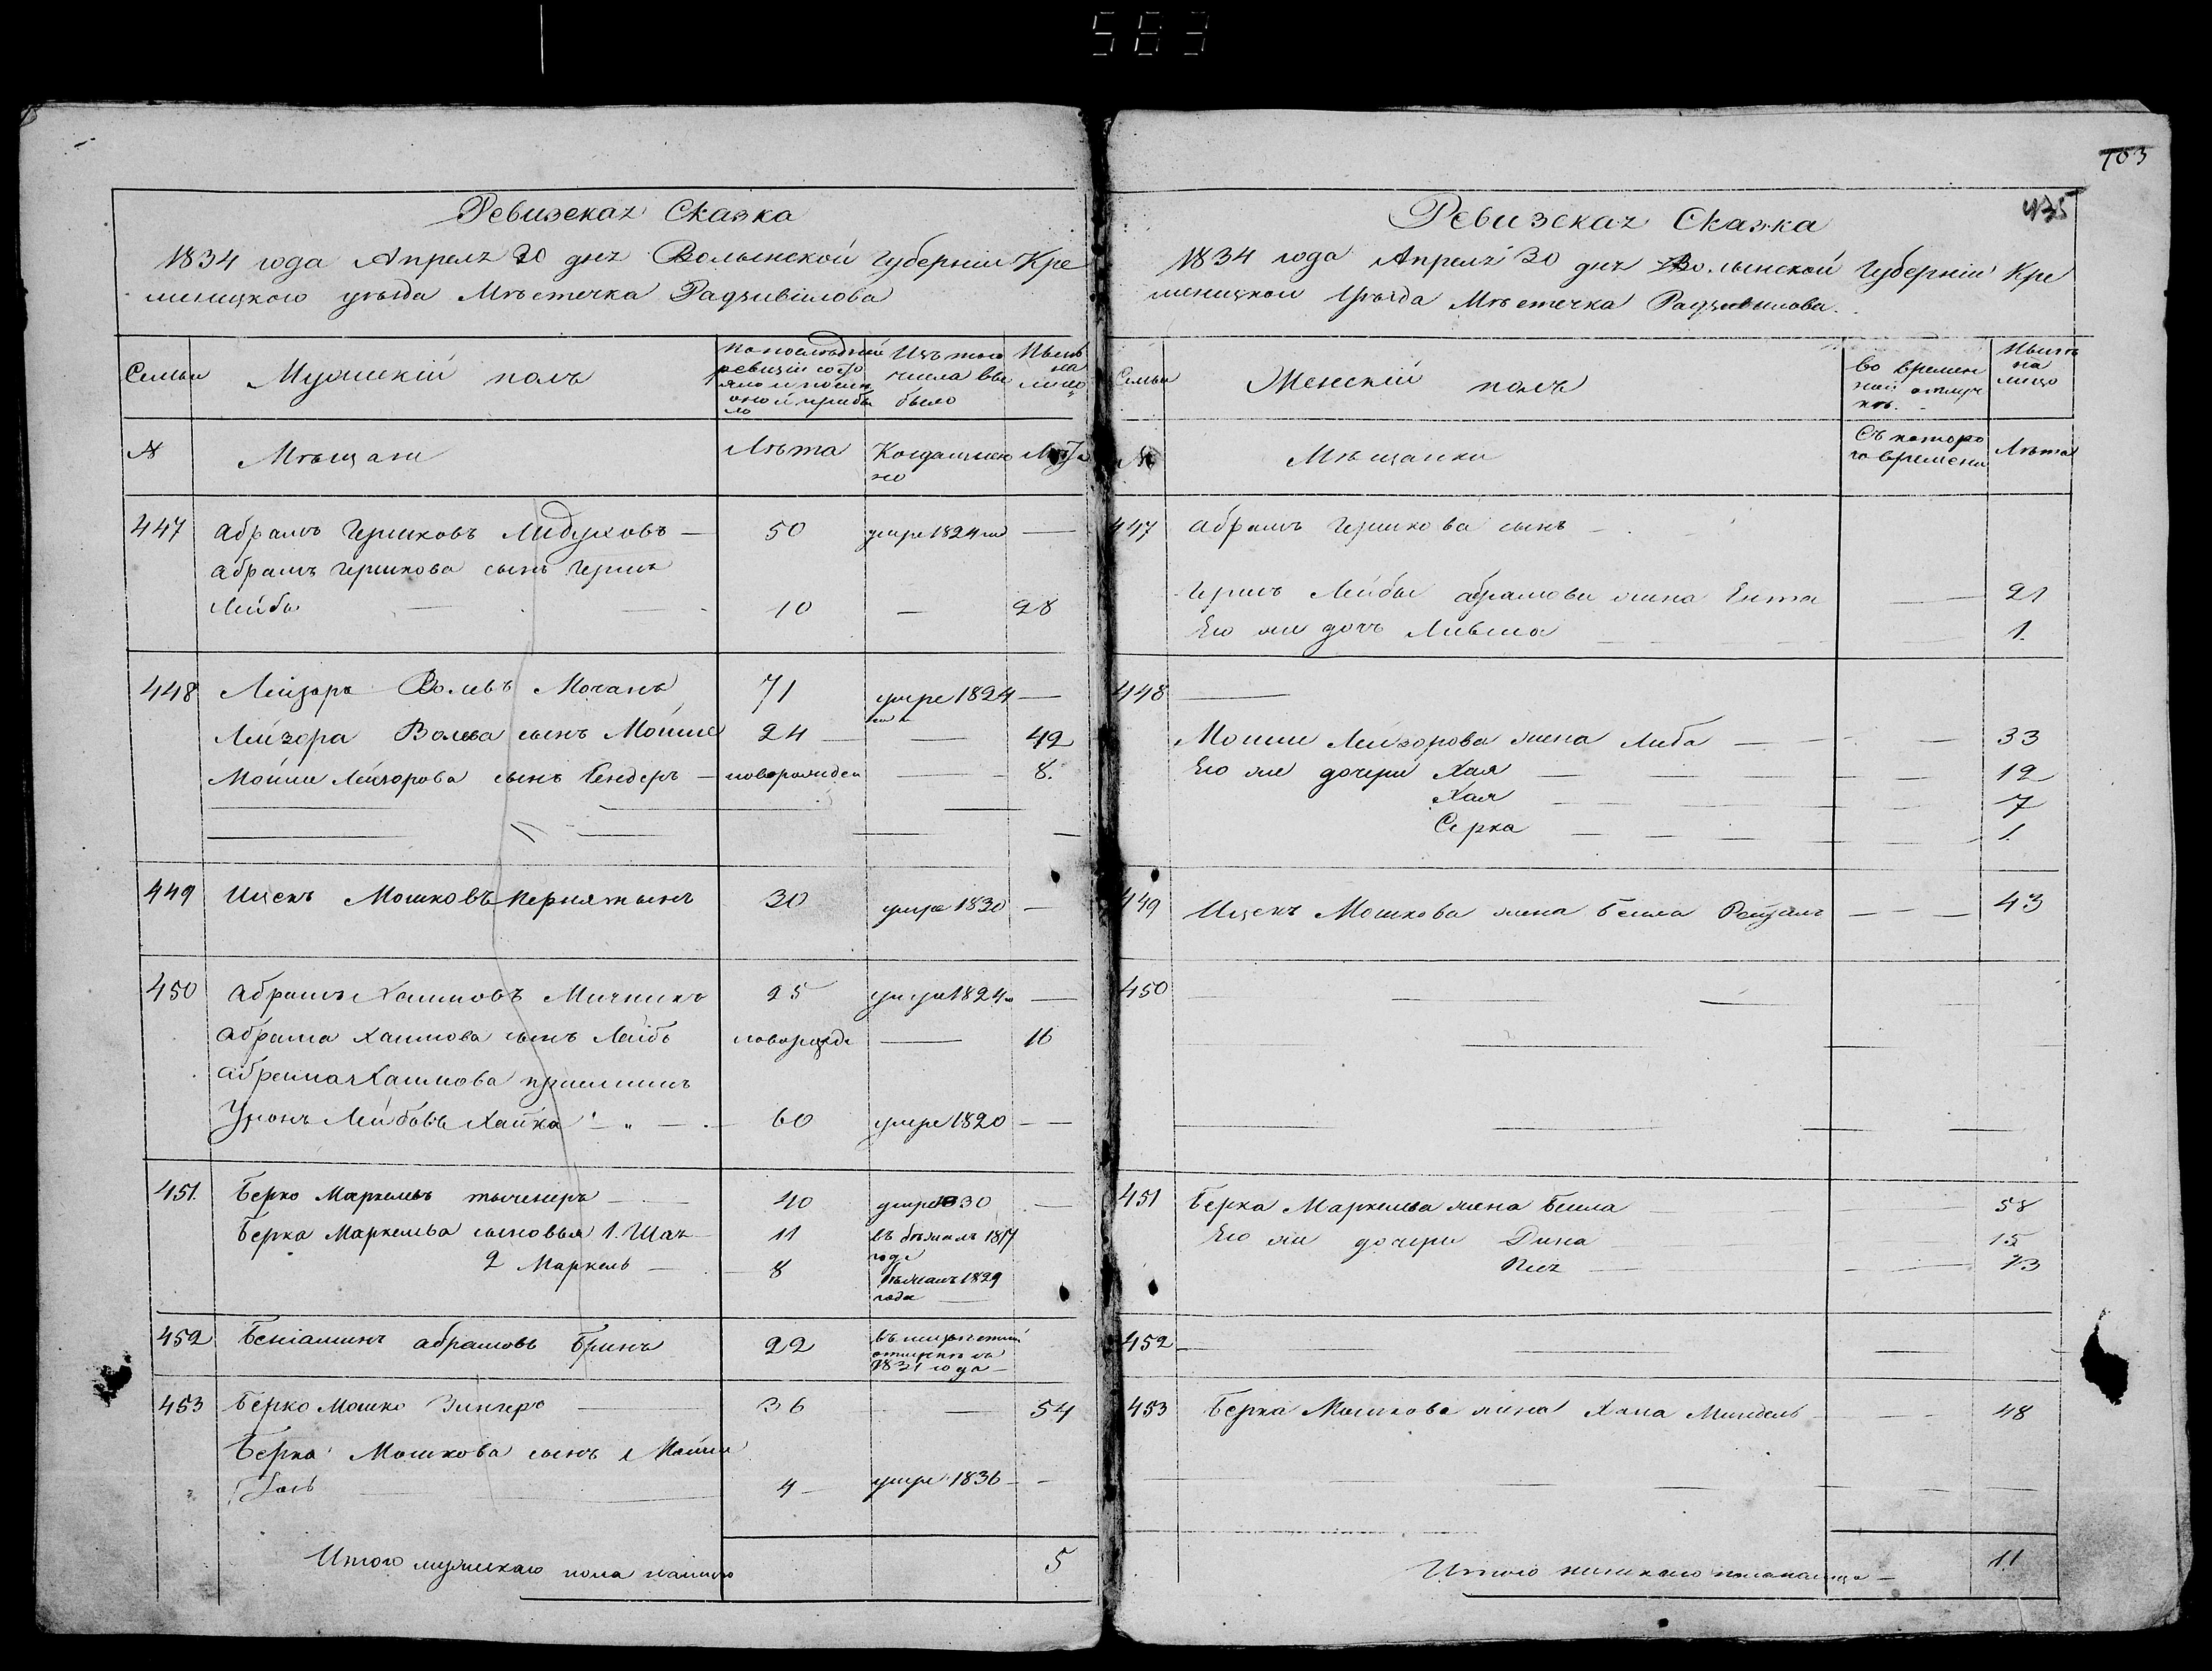 583
Ревизскаꙗ Сказка
1834 года Апреля 30 дня Волынской Губерніи Кре
менецкого уѣзда Мѣстечка Радзивілова
Семьи
Мужескій полъ
По последней
ревизіи состо
яло и после
оной прибы
ло
Изъ того
числа вы
было
Нынѣ
на
лицо
№
Мѣщане
Лѣта
Когда имен
но
Лѣта
447 Абрамъ Гершковъ Лидуховъ — 50 умре 1824го —
Абрамъ Гершкова сынъ Герш
Лейба — — 10 — 28
448 Лейзоръ Волевъ Мочанъ 71 умре 1824 —
Лейзора Волева сынъ Мойше 24 — — 42
Мойши Лейзорова сынъ Бендеръ — новорожден — 8.
449 Ицекъ Мошковъ 30 умре 1830 —
450 Абрамъ Хаимовъ Мичникъ 25 умре 1824го —
Абрама Хаимова сынъ Лейбъ новорожде — 16
Абрама Хаимова
Лейбовъ Хайка — „ — 60 умре 1820 — —
451. Берко Маркелевъ — 40 умре 1830 —
Берка Маркельва сыновья 1. Шая 11 въ бѣжалъ 1817
года
2 Маркель — 8 бѣжалъ 1829
года
452 Беніаминъ Абрамовъ Бринъ 22
1831 года —
453 Берко Мошко Зингеръ 36 — 54
Берка Мошкова сынъ Мойше
4 — умре 1836 — —
Итого мужескаго пола налицо 5
703
435
Ревизскаꙗ Сказка
1834 года Апреля 30 дня Волынской Губерніи Кре
менецкой Уѣзда Мѣстечка Радзивилова.
Семьи
Женскій полъ
во времен
ной отлуч
кѣ.
Нынѣ
на
лицо
№
Мѣщанки
Съ которо
го времени
Лѣта
447 Абрамъ Гершкова сынъ —
Гершъ Лейбы Абрамова жена Ента — 21
Его же дочь Ливша — 1.
448 —
Мошии Лейзорова жена Либа — — 33
Его же дочери Хая — — 12
Хая — — 7
Серка — — 1.
449 Ицекъ Мошкова жена Бейла Рейзля — — — 43
450 — —
451 Берка Маркельва жена Бейла — 58
Его же дочери Дина — 15
Песя — 13
452 —
453 Берка Мошкова жена Хана Миндель — 48
Итого женскаго пола налицо — 11